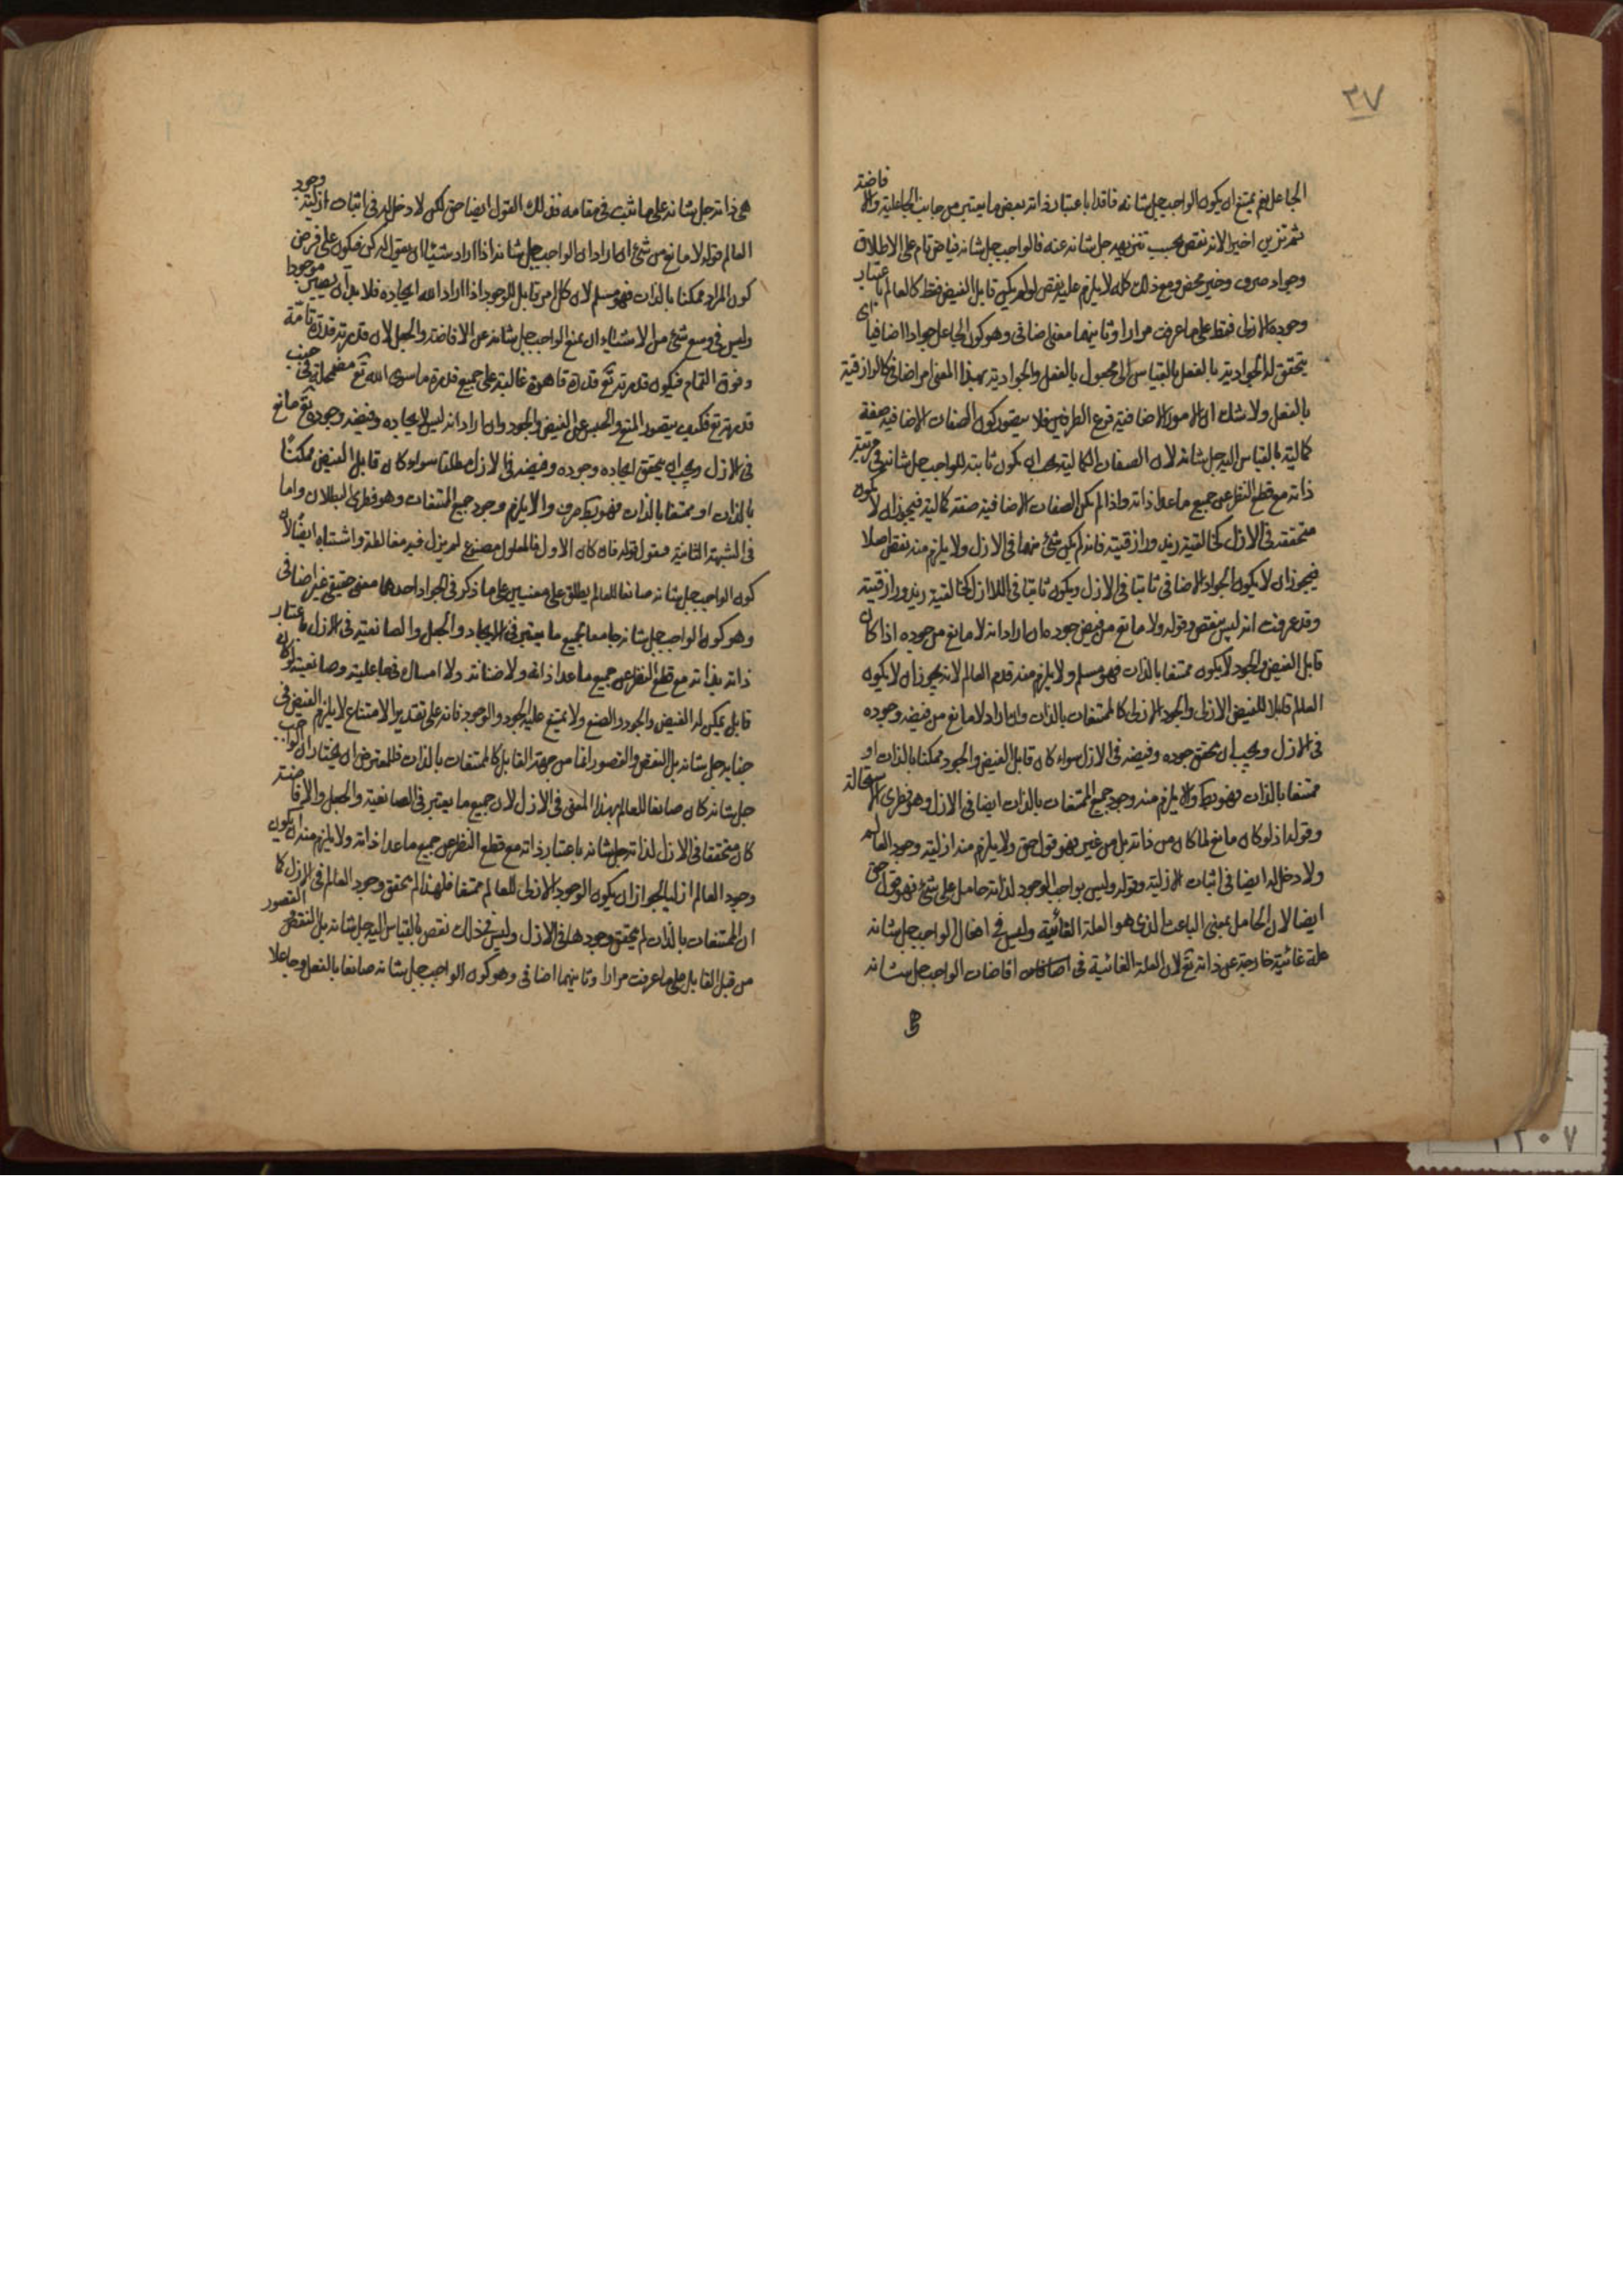 ٣٧
الجاعل نعم يمتنع ان يكون الواجب جل شانه فاقدا باعتبار ذاته بعض ما يعتبر من جانب الجاعلية والافاضة
اخيرا لانه نقص يجب تنزيهه جل شانه عنه فالواجب جل شانه فياض تام على الاطلاق
وجواد صرف وخير محض ومع ذلك كله لا يلزم عليه نقص لو لم يكن قابل الفيض فقط كالعالم باعتبار
وجوده الازلى فقط على ما عرفت مرارا وثانيهما معنى اضافى وهو كون الجاعل جوادا اضافيا اى
يتحقق له الجوادية بالفعل بالقياس الى مجعول بالفعل والجوادية بهذا المعنى امر اضافى كالرازقية
بالفعل ولا شك ان الامور الاضافية فرع الطرفين فلا يتصور كون الصفات الاضافية صفة
كمالية بالقياس اليه جل شانه لان الصفات الكمالية يجب ان يكون ثابتة للواجب جل شانه فى مرتبة
ذاته مع قطع النظر عن جميع ما عدا ذاته واذا لم يكن الصفات الاضافية صفة كمالية فيجوز ان لا يكون
متحققة فى الازل كخالقية زيد ورازقيته فانه لم يكن شئ منهما فى الازل ولا يلزم منه نقص اصلا
فيجوز ان لا يكون الجواد الاضافى ثابتا فى الازل ويكون ثابتا فى اللاازل كخالقية زيد ورازقيته
وقد عرفت انه ليس بنقص وقوله ولا مانع من فيض جوده ان اراد انه لا مانع من جوده اذا كان
قابل الفيض والجود لا يكون ممتنعا بالذات فهو مسلم ولا يلزم منه قدم العالم لانه يجوز ان لا يكون
العالم قابلا للفيض الازلى والجود الازلى كالممتنعات بالذات وان اراد لا مانع من فيضه وجوده
فى الازل ويجب ان يتحقق جوده وفيضه فى الازل سواء كان قابل الفيض والجود ممكنا بالذات او
ممتنعا بالذات فهو بط والا يلزم منه وجود جميع الممتنعات بالذات ايضا فى الازل وهو فطرى الاستحالة
وقوله اذ لو كان مانع لما كان من ذاته بل من غيره فهو قول حق ولا يلزم منه ازلية وجود العالم
ولا دخل له ايضا فى اثبات الازلية وقوله وليس بواجب الوجود لذاته حامل على شئ فهو قول حق
ايضا لان الحامل بمعنى الباعث الذى هو العلة الغائية وليس فى افعال الواجب جل شانه
علة غائية خارجة عن ذاته تع لان العلة الغائية فى افاضات الواجب جل شانه
هى
هى ذاته جل شانه على ما ثبت فى مقامه فذلك القول ايضا حق لكن لا دخل له فى اثبات ازلية وجود
العالم قوله لا مانع من شئ ان اراد ان الواجب جل شانه اذا اراد شيئا ان يقول له كن فيكون على فرض
كون المراد ممكنا بالذات فهو مسلم لان كل امر قابل للوجود اذا اراد الله ايجاده فلا بد ان يصير موجودا
وليس فى وسع شئ من الاشياء ان يمنع الواجب جل شانه عن الافاضة والجعل لان قدرته قدرة تامة
وفوق التمام فيكون قدرته تع قدرة قاهرة غالبة على جميع قدرة ما سوى الله تع مضمحلة فى جنب
قدرته تع فكيف يتصور المنع والحبس عن الفيض والجود وان اراد انه ليس لايجاده وفيضه وجوده تع مانع
فى الازل ويجب ان يتحقق ايجاده وجوده وفيضه فى الازل مطلقا سواء كان قابل الفيض ممكنا
بالذات او ممتنعا بالذات فهو بط صرف والا يلزم وجود جميع الممتنعات وهو فطرى البطلان واما
فى الشبهة الثانية فنقول قوله فان كان الاول فالمعلول مصنوع لم يزل فيه مغالطة واشتباه ايضا لان
كون الواجب جل شانه صانعا للعالم يطلق على معنيين على ما ذكر فى الجواد احدهما معنى حقيقى غير اضافى
وهو كون الواجب جل شانه جامعا لجميع ما يعتبر فى الايجاد والجعل والصانعية فى الازل باعتبار
ذاته بذاته مع قطع النظر عن جميع ما عدا ذاته ولا ضنانة ولا امساك فى فاعليته وصانعيته لو كان
قابل يمكن له الفيض والجود والصنع ولا يمتنع عليه الجود والوجود فانه على تقدير الامتناع لا يلزم النقص فى
جنابه جل شانه بل النقص والقصور انما من جهة القابل كالممتنعات بالذات فللمعترض ان يختار ان الواجب
جل شانه كان صانعا للعالم بهذا المعنى فى الازل لان جميع ما يعتبر فى الصانعية والجعل والافاضة
كان متحققا فى الازل لذاته جل شانه باعتبار ذاته مع قطع النظر عن جميع ما عدا ذاته ولا يلزم منه ان يكون
وجود العالم ازليا لجواز ان يكون الوجود الازلى للعالم ممتنعا فلهذا لم يتحقق وجود العالم فى الازل كما
ان الممتنعات بالذات لم يتحقق وجودها فى الازل وليس فى ذلك نقص بالقياس اليه جل شانه بل النقص والقصور
من قبل القابل على ما عرفت مرارا وثانيهما اضافى وهو كون الواجب جل شانه صانعا بالفعل وجاعلا